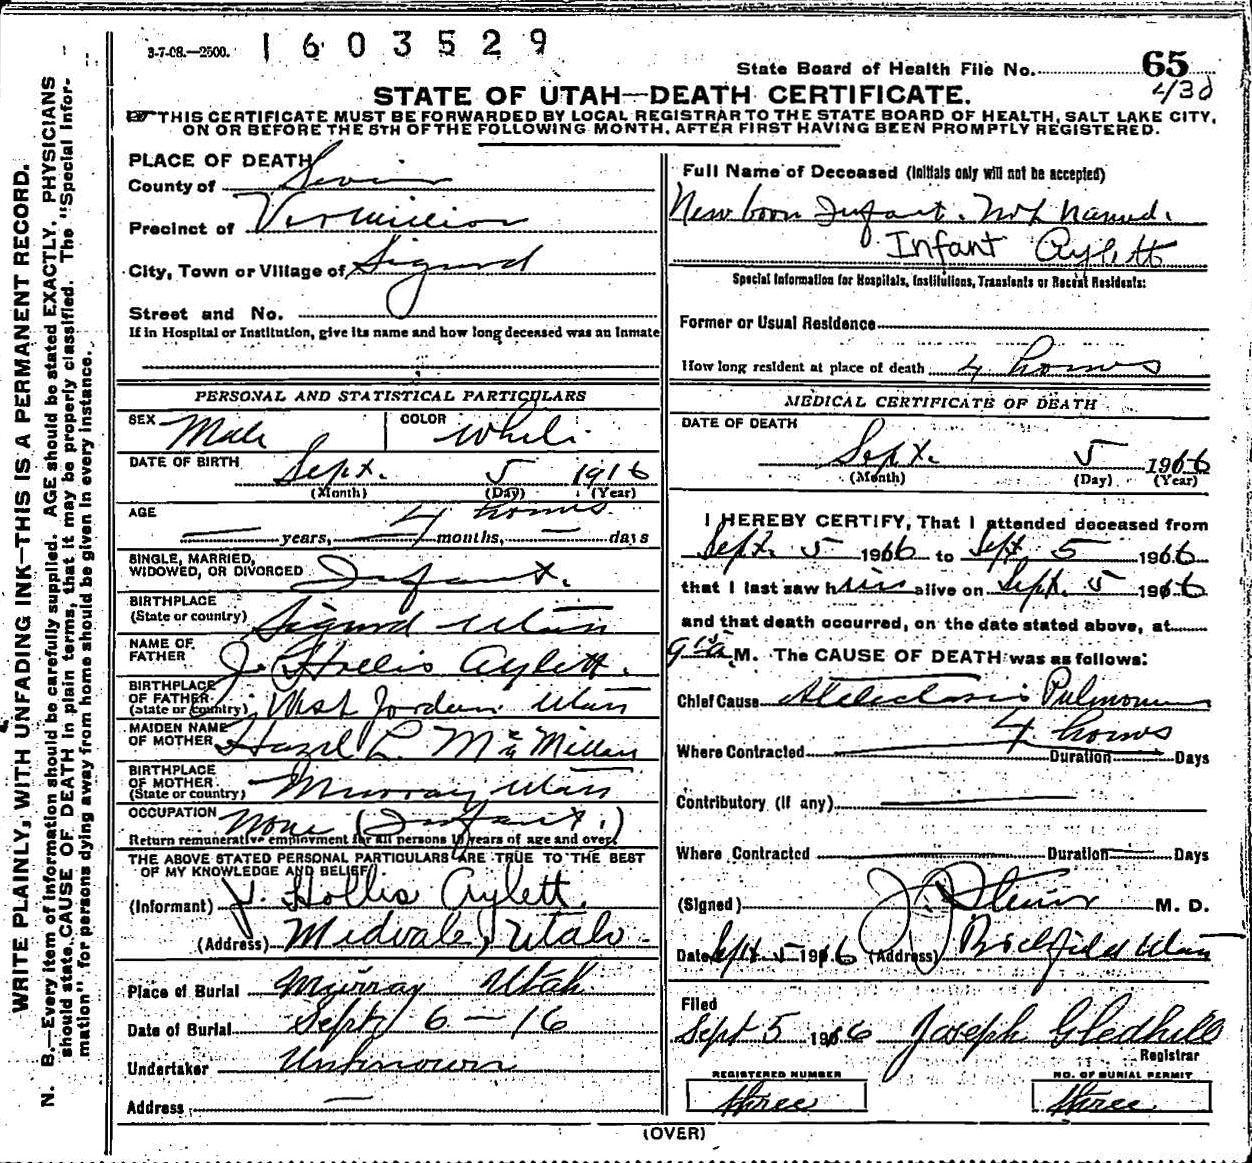 3-7-08.—2500. 1603529
State Board of Health File No. 65
430
STATE OF UTAH—DEATH CERTIFICATE.
THIS CERTIFICATE MUST BE FORWARDED BY LOCAL REGISTRAR TO THE STATE BOARD OF HEALTH, SALT LAKE CITY,
ON OR BEFORE THE 5TH OF THE FOLLOWING MONTH, AFTER FIRST HAVING BEEN PROMPTLY REGISTERED.
WRITE PLAINLY, WITH UNFADING INK—THIS IS A PERMANENT RECORD.
N. B.—Every item of information should be carefully supplied. AGE should be stated EXACTLY, PHYSICIANS
should state CAUSE OF DEATH in plain terms, that it may be properly classified. The "Special Infor-
mation" for persons dying away from home should be given in every instance.
PLACE OF DEATH
County of Sevier
Precinct of Vermillion
City, Town or Village of Sigurd
Street and No.
If in Hospital or Institution, give its name and how long deceased was an Inmate
PERSONAL AND STATISTICAL PARTICULARS
SEX Male COLOR White
DATE OF BIRTH Sept. 5 1916
(Month) (Day) (Year)
AGE 4 hours
years, months, days
SINGLE, MARRIED,
WIDOWED, OR DIVORCED Infant.
BIRTHPLACE
(State or country) Sigurd Utah
NAME OF
FATHER J. Hollis Aylett.
BIRTHPLACE
OF FATHER
(state or country) West Jordan Utah
MAIDEN NAME
OF MOTHER Hazel L. McMillan
BIRTHPLACE
OF MOTHER
(State or country) Murray Utah
OCCUPATION None (Infant.)
Return remunerative employment for all persons 10 years of age and over.
THE ABOVE STATED PERSONAL PARTICULARS ARE TRUE TO THE BEST
OF MY KNOWLEDGE AND BELIEF.
(Informant) J. Hollis Aylett.
(Address) Midvale, Utah
Place of Burial Murray Utah
Date of Burial Sept 6 — 16
Undertaker Unknown
Address —
Full Name of Deceased (Initials only will not be accepted)
New born Infant. Not Named.
Infant Aylett
Special Information for Hospitals, Institutions, Transients or Recent Residents:
Former or Usual Residence
How long resident at place of death 4 hours
MEDICAL CERTIFICATE OF DEATH
DATE OF DEATH
Sept. 5 1916
(Month) (Day) (Year)
I HEREBY CERTIFY, That I attended deceased from
Sept. 5 1916 to Sept 5 1916
that I last saw him alive on Sept. 5 1916
and that death occurred, on the date stated above, at
9 a M. The CAUSE OF DEATH was as follows:
Chief Cause Atelectasis Pulmonum
4 hours
Where Contracted Duration Days
Contributory (if any)
Where Contracted Duration Days
(Signed) M. D.
Date Sept 5 1916 (Address) Richfield Utah
Filed
Sept 5 1916 Joseph Gledhill
Registrar
REGISTERED NUMBER NO. OF BURIAL PERMIT
three three
(OVER)